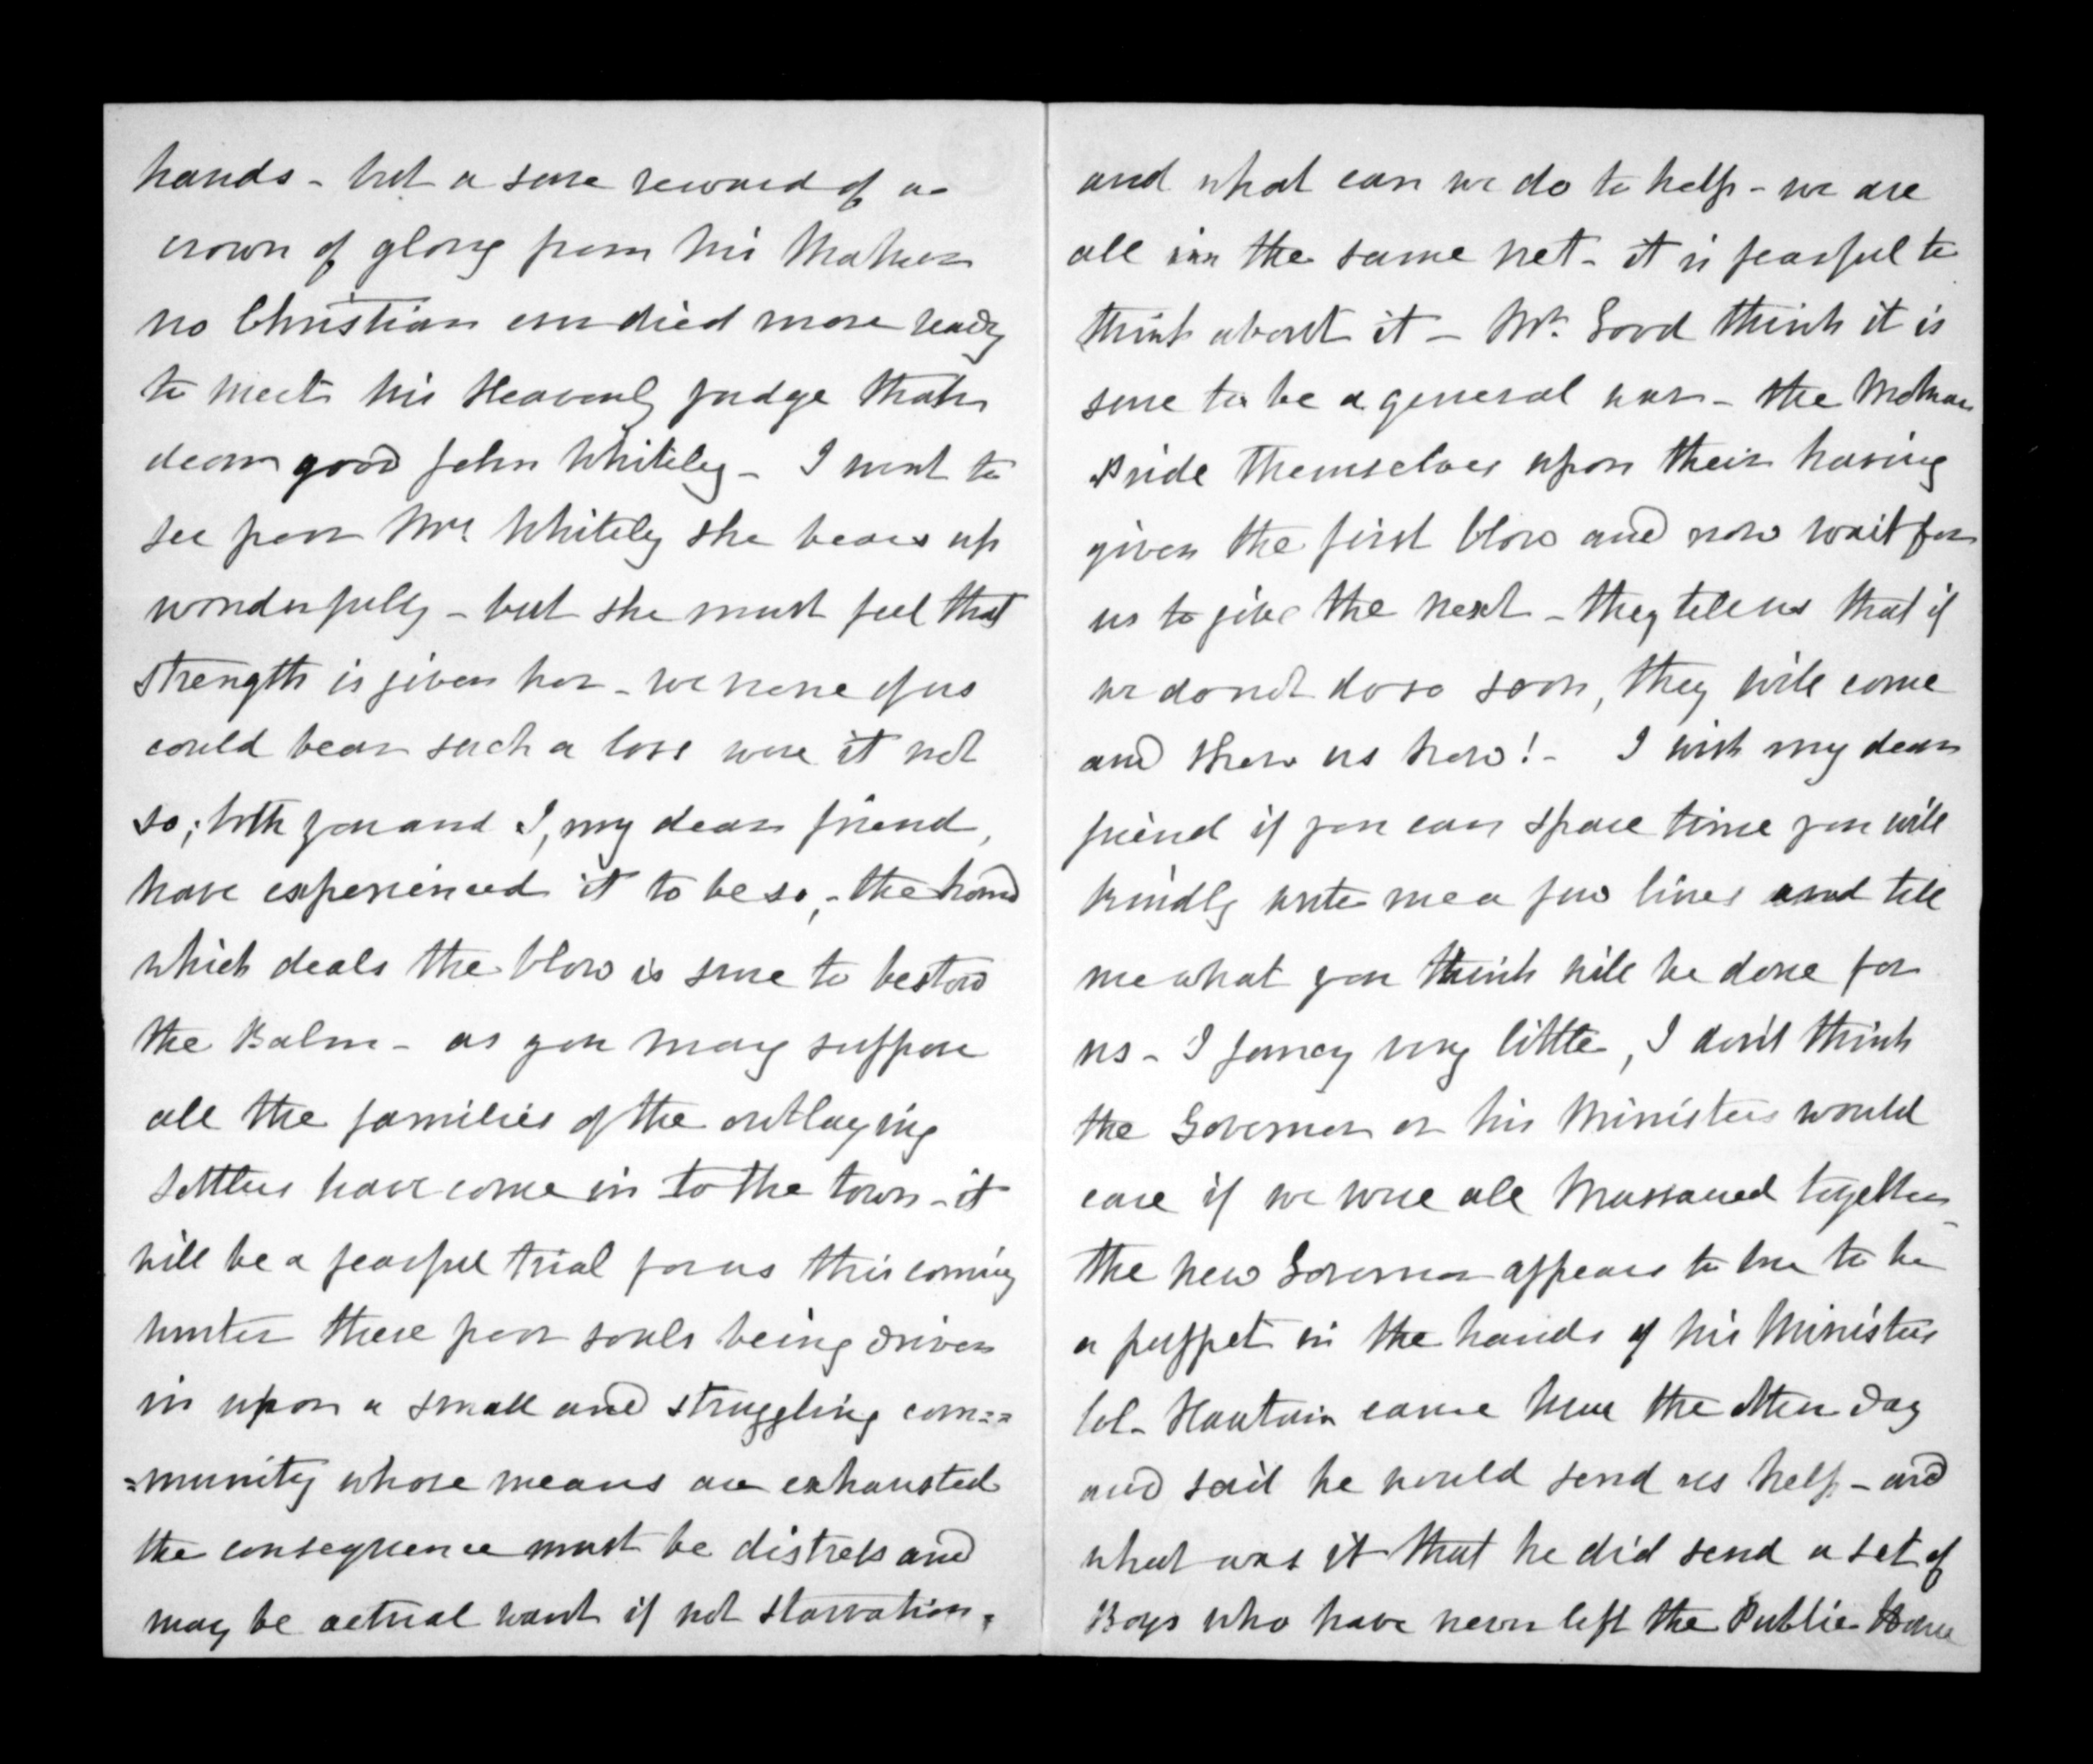 hands - but a sure reward of a
crown of glory from his Maker
no Christian ever died more ready
to meet his Heavenly judge than
dear good John Whiteley - I went to
see poor Mrs Whitely she bears up
wonderfully - but she must feel that
strength is given her - we none of us
could bear such a loss were it not
so; both you and I, my dear friend,
have experienced it to be so, - the hand
which deals the blow is sure to bestow
the Balm - as you may suppose
all the families of the outlaying
settlers have come in to the town - it
will be a fearful trial for us this coming
winter these poor souls being driven
in upon a small and struggling com==
=munity whose means are exhausted
the consequence must be distress and
may be actual want if not starvation.
and what can we do to help - we are
all in the same net - it is fearful to
think about it - Mr. Good think it is
sure to be a general war - the
pride themselves upon their having
given the first blow and now wait for
us to give the next - they tell us that if
we do not do so soon, they will come
and show us how! - I wish my dear
friend if you can spare time you will
kindly write me a few lines and tell
me what you think will be done for
us - I fancy very little, I don't think
the Governor or his Ministers would
care if we were all Massacred together -
the new Governor appears to me to be
a puppet in the hands of his Ministers
Col. Haultain came here the other day
and said he would send us help - and
what was it that he did send a set of
Boys who have never left the Public House